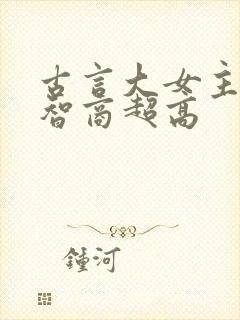 古言大女主
智商超高
鍾河